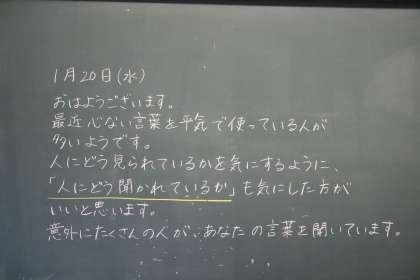 1月20日(水)
おはようございます。
最近心ない言葉を平気で使っている人が
多いようです。
人にどう見られているかを気にするように、
「人にどう聞かれているか」も気にした方が
いいと思います。
意外にたくさんの人が、あなたの言葉を聞いています。